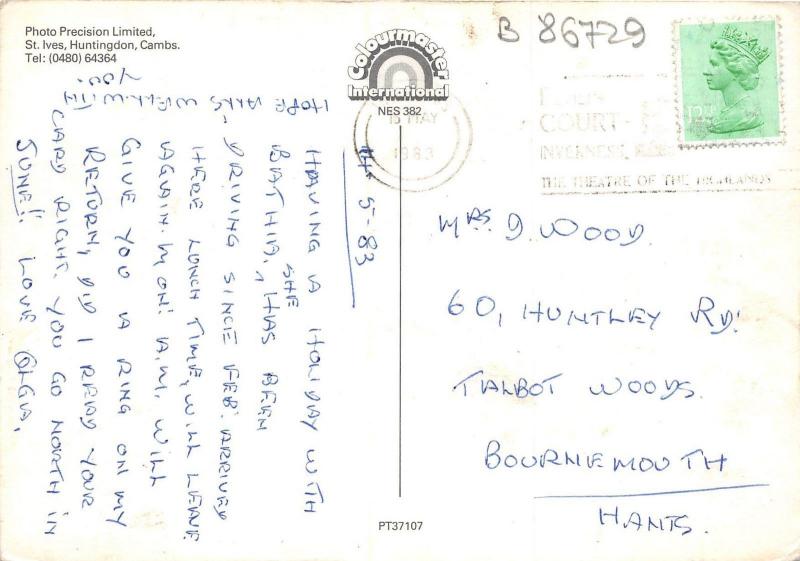 Photo Precision Limited,
St. Ives, Huntingdon, Cambs.
Tel: (0480) 64364
Colourmaster
International
NES 382
B 86729
13 MAY
1983
COURT
INVERNESS,
THE THEATRE OF THE HIGHLANDS
14-5-83
HAVING A HOLIDAY WITH
SHE
BATHIA, ^ HAS BEEN
DRIVING SINCE FEB. ARRIVED
HERE LUNCH TIME, WILL LEAVE
AGAIN. MON! A.M. WILL
GIVE YOU A RING ON MY
RETURN, DID I READ YOUR
CARD RIGHT. YOU GO NORTH IN
JUNE!! LOVE OLGA,
HOPE ALLS WELL WITH
YOU.
MRS. D. WOOD.
60, HUNTLEY RD!
TALBOT WOODS.
BOURNEMOUTH
HANTS.
PT37107